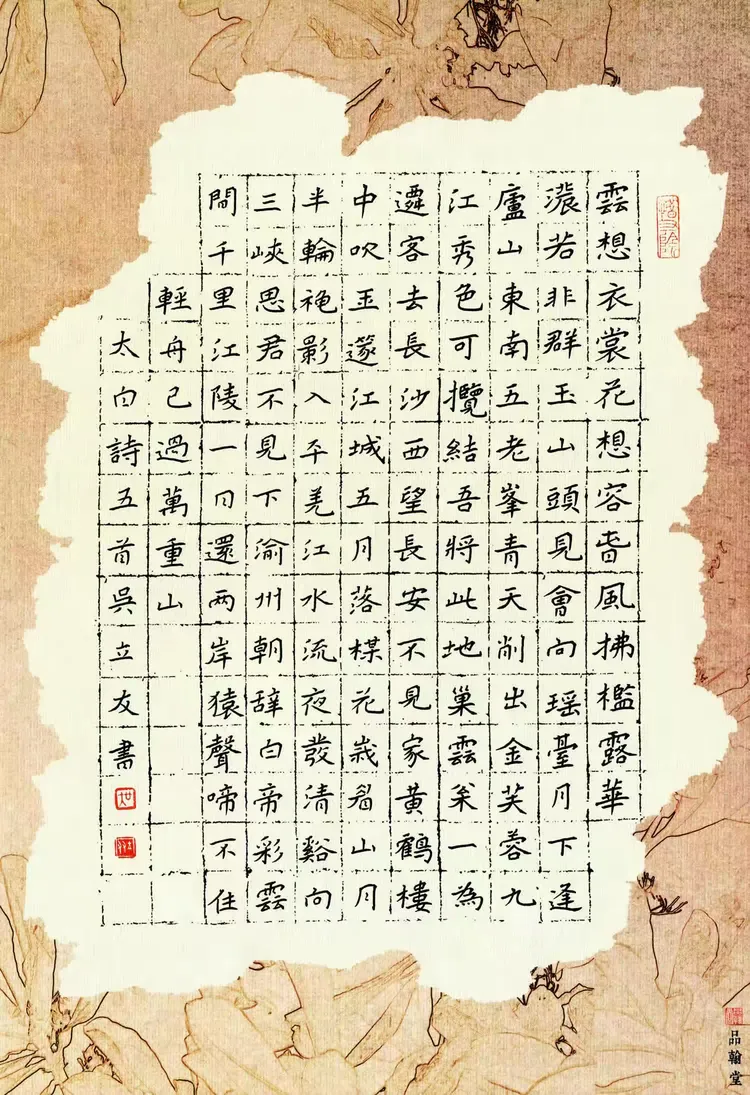 雲想衣裳花想容旾風拂檻露華
濃若非群玉山頭見會向瑶臺月下逢
廬山東南五老峯青天削出金芙蓉九
江秀色可攬結吾將此地巢雲枀一為
遷客去長沙西望長安不見家黄鶴樓
中吹玉篴江城五月落楳花峩眉山月
半輪秌影入平羌江水流夜發清谿向
三峽思君不見下渝州朝辞白帝彩雲
間千里江陵一日還两岸猿聲啼不住
輕舟已過萬重山
太白詩五首吳立友書
品翰堂